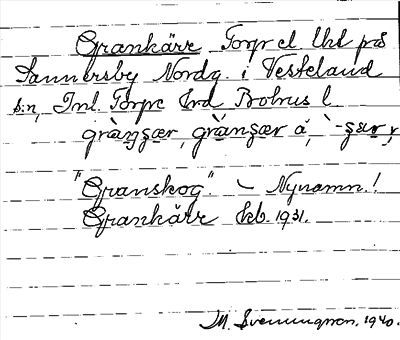 Grankärr Torp el. lht på
Sannersby Nordg. i Västeland
s:n, Inl. Torpe hrd Bohus l.
gràn̥ʒær, gràn̥ʒær å, `-ʒær,
"Granskog". – Nynamn!
Grankärr kb. 1931.
M. Svenningson. 1940.